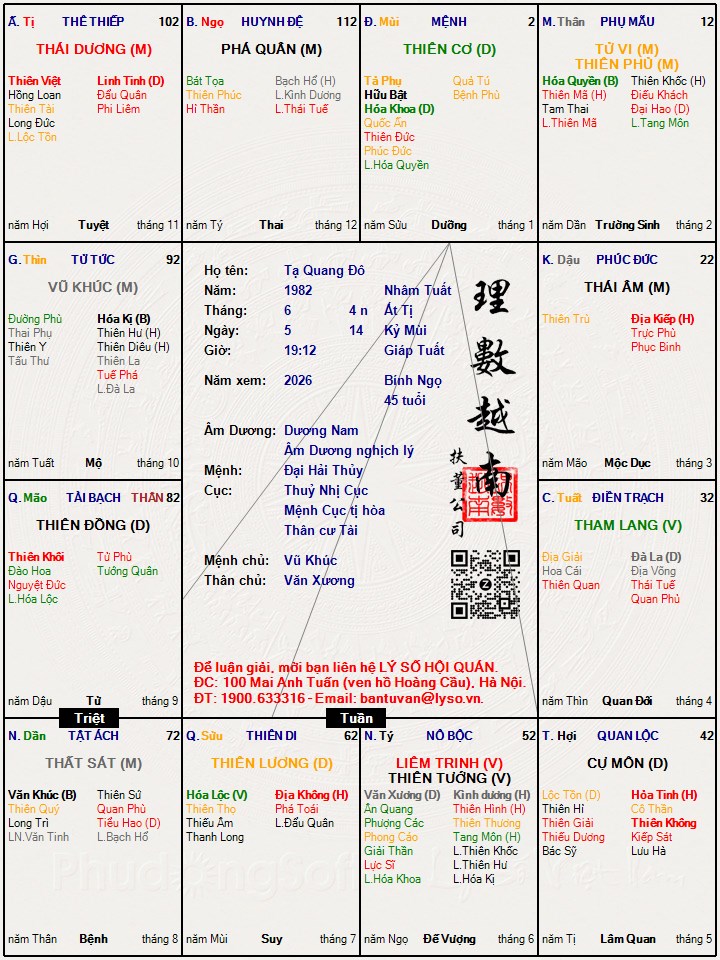 Ấ. Tị THÊ THIẾP 102
THÁI DƯƠNG (M)
Thiên Việt Linh Tinh (D)
Hồng Loan Đẩu Quân
Thiên Tài Phi Liêm
Long Đức
L.Lộc Tồn
năm Hợi Tuyệt tháng 11
B. Ngọ HUYNH ĐỆ 112
PHÁ QUÂN (M)
Bát Tọa Bạch Hổ (H)
Thiên Phúc L.Kình Dương
Hỉ Thần L.Thái Tuế
năm Tý Thai tháng 12
Đ. Mùi MỆNH 2
THIÊN CƠ (D)
Tả Phụ Quả Tú
Hữu Bật Bệnh Phù
Hóa Khoa (D)
Quốc Ấn
Thiên Đức
Phúc Đức
L.Hóa Quyền
năm Sửu Dưỡng tháng 1
M. Thân PHỤ MẪU 12
TỬ VI (M)
THIÊN PHỦ (M)
Hóa Quyền (B) Thiên Khốc (H)
Thiên Mã (H) Điếu Khách
Tam Thai Đại Hao (D)
L.Thiên Mã L.Tang Môn
năm Dần Trường Sinh tháng 2
G. Thìn TỬ TỨC 92
VŨ KHÚC (M)
Đường Phù Hóa Kị (B)
Thai Phụ Thiên Hư (H)
Thiên Y Thiên Diêu (H)
Tấu Thư Thiên La
Tuế Phá
L.Đà La
năm Tuất Mộ tháng 10
Họ tên: Tạ Quang Đô
Năm: 1982 Nhâm Tuất
Tháng: 6 4 n Ất Tị
Ngày: 5 14 Kỷ Mùi
Giờ: 19:12 Giáp Tuất
Năm xem: 2026 Bính Ngọ
45 tuổi
Âm Dương: Dương Nam
Âm Dương nghịch lý
Mệnh: Đại Hải Thủy
Cục: Thuỷ Nhị Cục
Mệnh Cục tị hòa
Thân cư Tài
Mệnh chủ: Vũ Khúc
Thân chủ: Văn Xương
理數越南
扶董公司
Để luận giải, mời bạn liên hệ LÝ SỐ HỘI QUÁN.
ĐC: 100 Mai Anh Tuấn (ven hồ Hoàng Cầu), Hà Nội.
ĐT: 1900.633316 - Email: bantuvan@lyso.vn.
K. Dậu PHÚC ĐỨC 22
THÁI ÂM (M)
Thiên Trù Địa Kiếp (H)
Trực Phù
Phục Binh
năm Mão Mộc Dục tháng 3
Q. Mão TÀI BẠCH THÂN 82
THIÊN ĐỒNG (D)
Thiên Khôi Tử Phù
Đào Hoa Tướng Quân
Nguyệt Đức
L.Hóa Lộc
năm Dậu Tử tháng 9
C. Tuất ĐIỀN TRẠCH 32
THAM LANG (V)
Địa Giải Đà La (D)
Hoa Cái Địa Võng
Thiên Quan Thái Tuế
Quan Phủ
năm Thìn Quan Đới tháng 4
Triệt
Tuần
N. Dần TẬT ÁCH 72
THẤT SÁT (M)
Văn Khúc (B) Thiên Sứ
Thiên Quý Quan Phù
Long Trì Tiểu Hao (D)
LN.Văn Tinh L.Bạch Hổ
năm Thân Bệnh tháng 8
Q. Sửu THIÊN DI 62
THIÊN LƯƠNG (D)
Hóa Lộc (V) Địa Không (H)
Thiên Thọ Phá Toái
Thiếu Âm L.Đẩu Quân
Thanh Long
năm Mùi Suy tháng 7
N. Tý NÔ BỘC 52
LIÊM TRINH (V)
THIÊN TƯỚNG (V)
Văn Xương (D) Kình dương (H)
Ân Quang Thiên Hình (H)
Phượng Các Thiên Thương
Phong Cáo Tang Môn (H)
Giải Thần L.Thiên Khốc
Lực Sĩ L.Thiên Hư
L.Hóa Khoa L.Hóa Kị
năm Ngọ Đế Vượng tháng 6
T. Hợi QUAN LỘC 42
CỰ MÔN (D)
Lộc Tồn (D) Hỏa Tinh (H)
Thiên Hỉ Cô Thần
Thiên Giải Thiên Không
Thiếu Dương Kiếp Sát
Bác Sỹ Lưu Hà
năm Tị Lâm Quan tháng 5